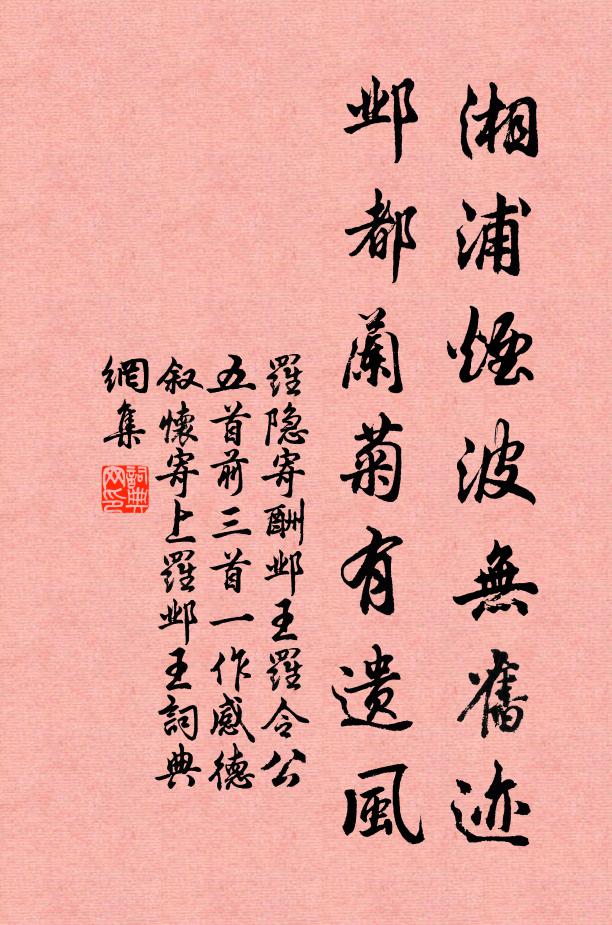 湘浦煙波無舊迹
邺都蘭菊有遗風
羅隐寄酬邺王羅令公
五首前三首一作感德
叙懷寄上羅邺王詞典
網集
詞典